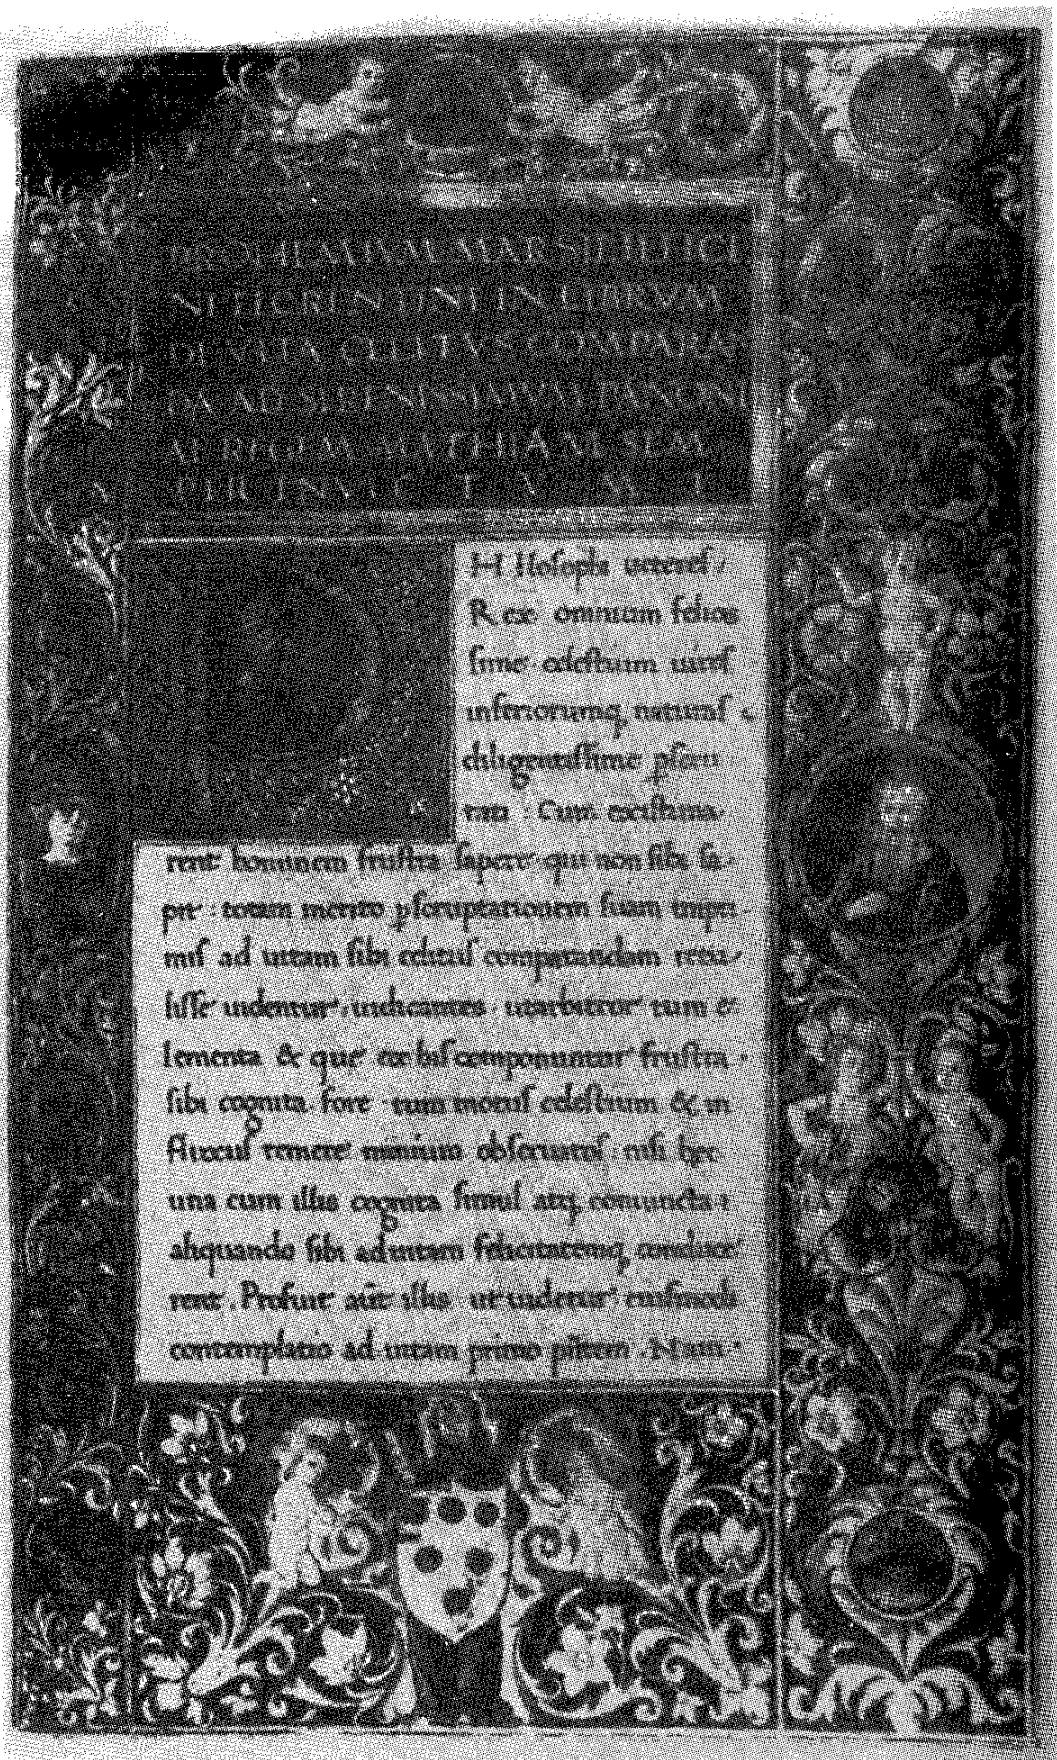 PROHEMIVM MARSILII FICI
NI FLORENTINI IN LIBRVM
DE VITA CELITVS COMPARA
DA AD SERENISSIMVM PANNONI
AE REGEM MATTHIAM SEM
PER INVIC T V M
HIlosophi ueteres /
Rex omnium felicis
sime celestium uires
inferiorumq naturas
diligentissime pscru
tati : Cum existima
rent hominem frustra sapere qui non sibi sa
pit : totam merito pscruptationem suam impri
mis ad uitam sibi celitus comparandam retu
lisse uidentur : iudicantes utarbitror tum e
lementa & que ex his componuntur frustra
sibi cognita fore tum motus celestium & in
fluxus temere nimium obseruatos nisi hec
una cum illis cognita simul atq coniuncta
aliquando sibi aduitam felicitatemq conduce
rent . Profuit aūt illis ut uidetur eiusmodi
contemplatio ad uitam primo pñtem . Nam